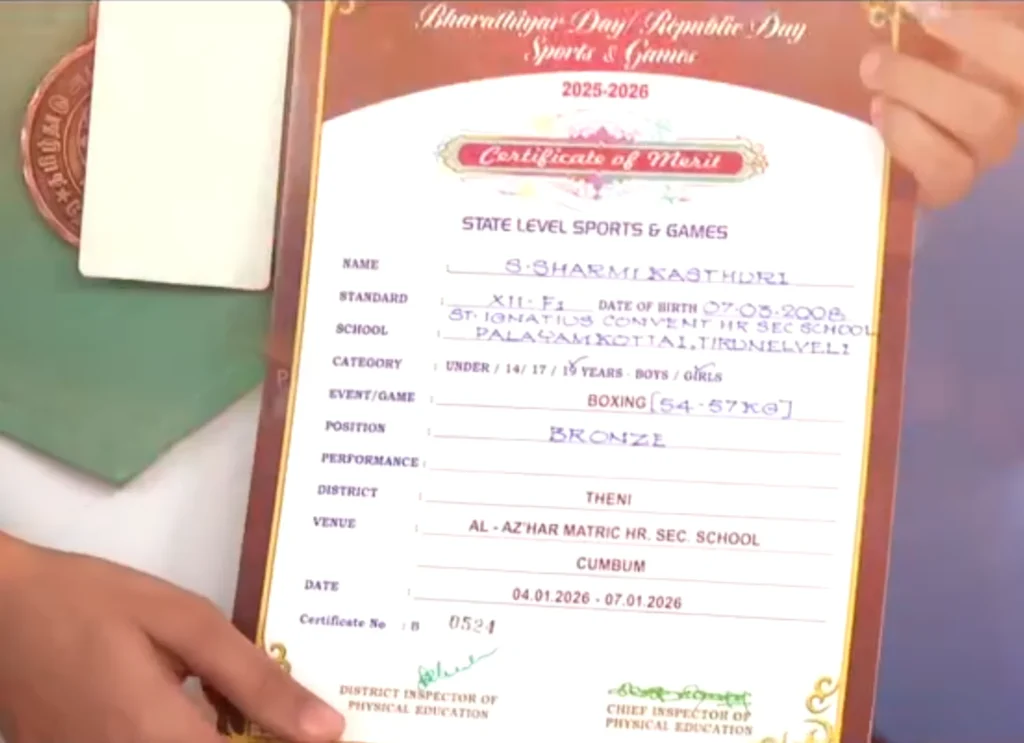 Bharathiyar Day/ Republic Day
Sports & Games
2025-2026
Certificate of Merit
STATE LEVEL SPORTS & GAMES
NAME : S. SHARMI KASTHURI
STANDARD : XII - F1 DATE OF BIRTH 07-03-2008
SCHOOL : ST. IGNATIUS CONVENT HR SEC SCHOOL
PALAYAMKOTTAI, TIRUNELVELI
CATEGORY : UNDER / 14/ 17 / 19 YEARS - BOYS / GIRLS
EVENT/GAME : BOXING [54-57KG]
POSITION : BRONZE
PERFORMANCE :
DISTRICT : THENI
VENUE : AL - AZ'HAR MATRIC HR. SEC. SCHOOL
CUMBUM
DATE : 04.01.2026 - 07.01.2026
Certificate No : B 0524
DISTRICT INSPECTOR OF
PHYSICAL EDUCATION
CHIEF INSPECTOR OF
PHYSICAL EDUCATION